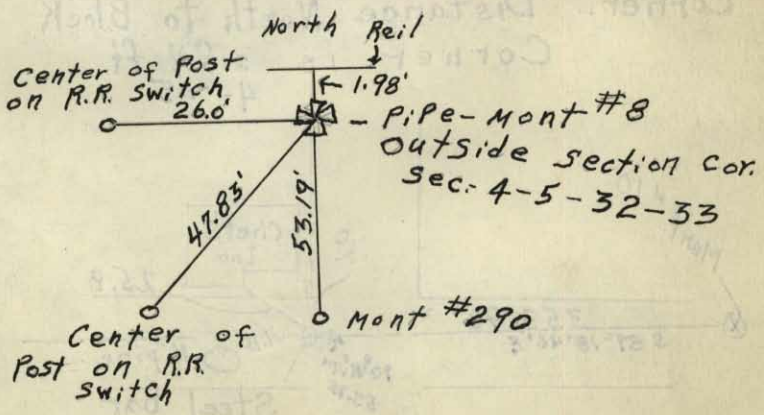 North Reil
Center of Post
on R.R. Switch
1.98'
26.0'
- PiPe - Mont #8
Outside Section Cor.
Sec.- 4-5-32-33
47.83'
53.19'
Mont #290
Center of
Post on R.R.
Switch